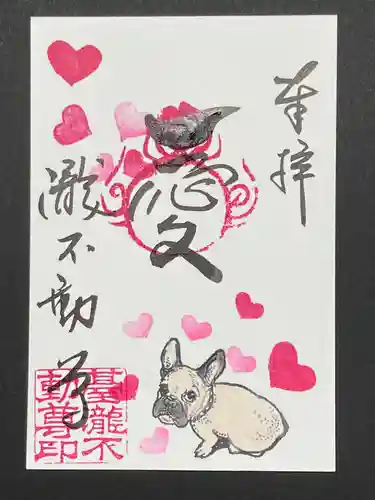 奉拝
愛
瀧不動尊
基龍不
動尊印